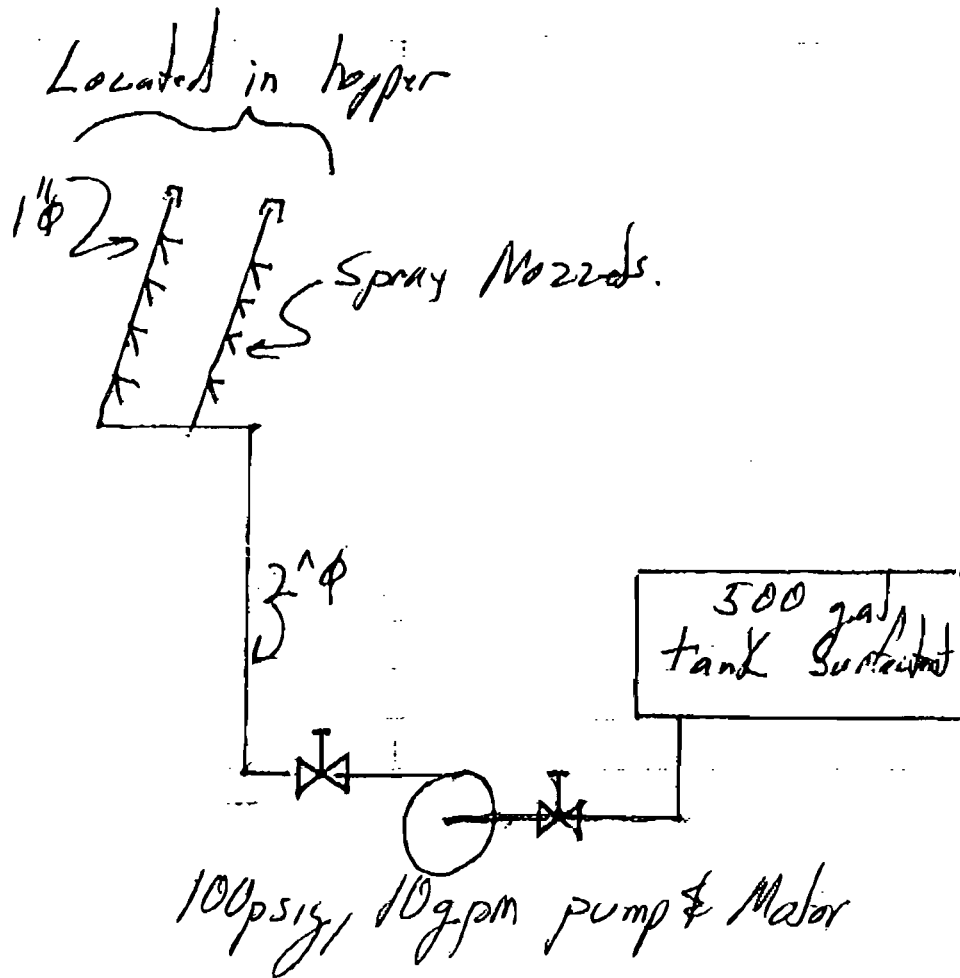 Located in hopper
1"φ
Spray Nozzels.
2"φ
500 gal
tank Surfactant
100psig, 10gpm pump & Motor